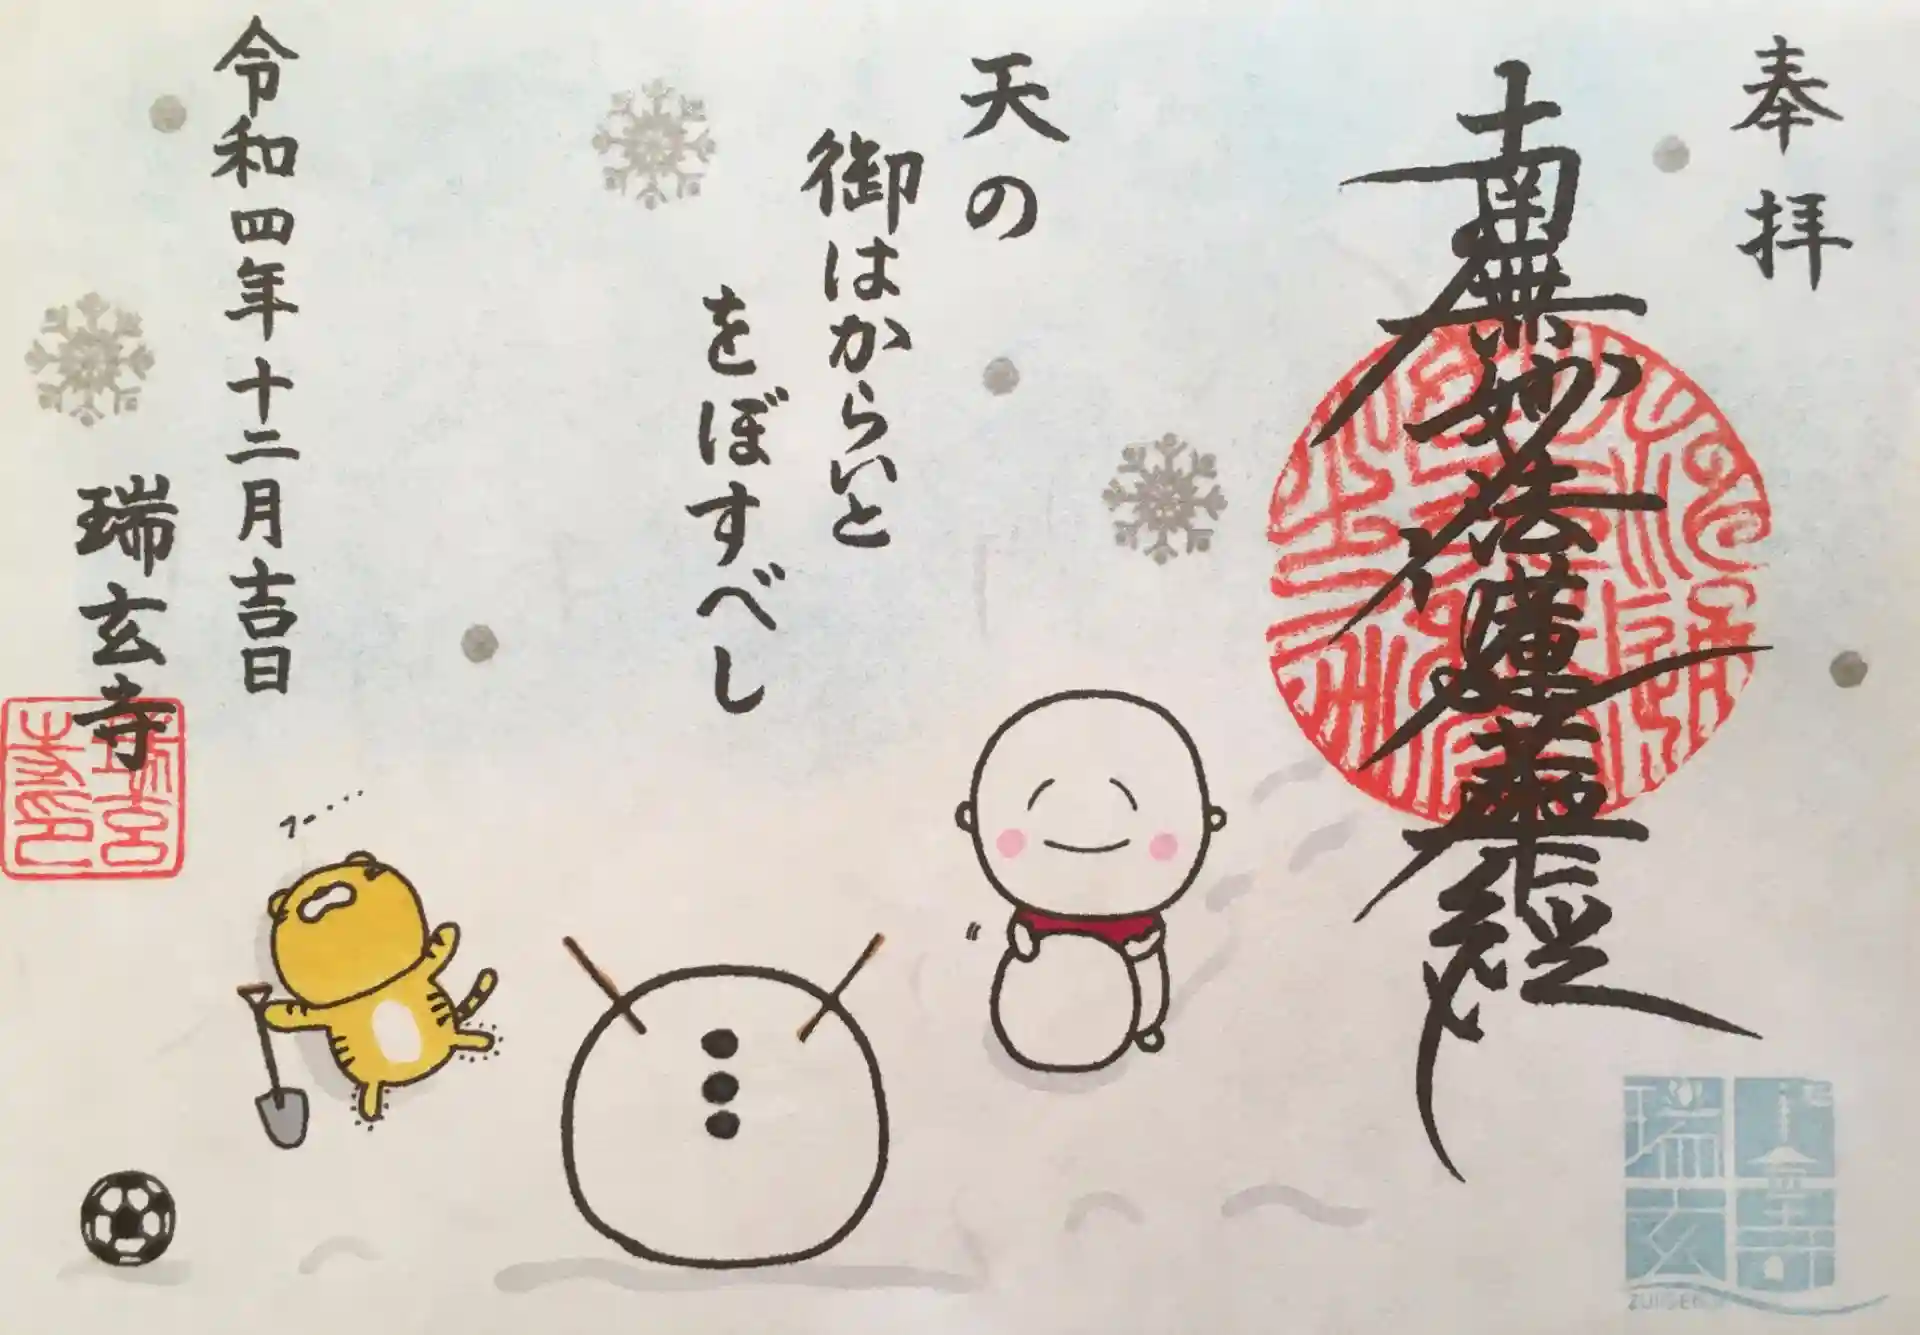 奉拝
南無妙法蓮華経
天の
御はからいと
をぼすべし
令和四年十二月吉日
瑞玄寺
瑞玄寺